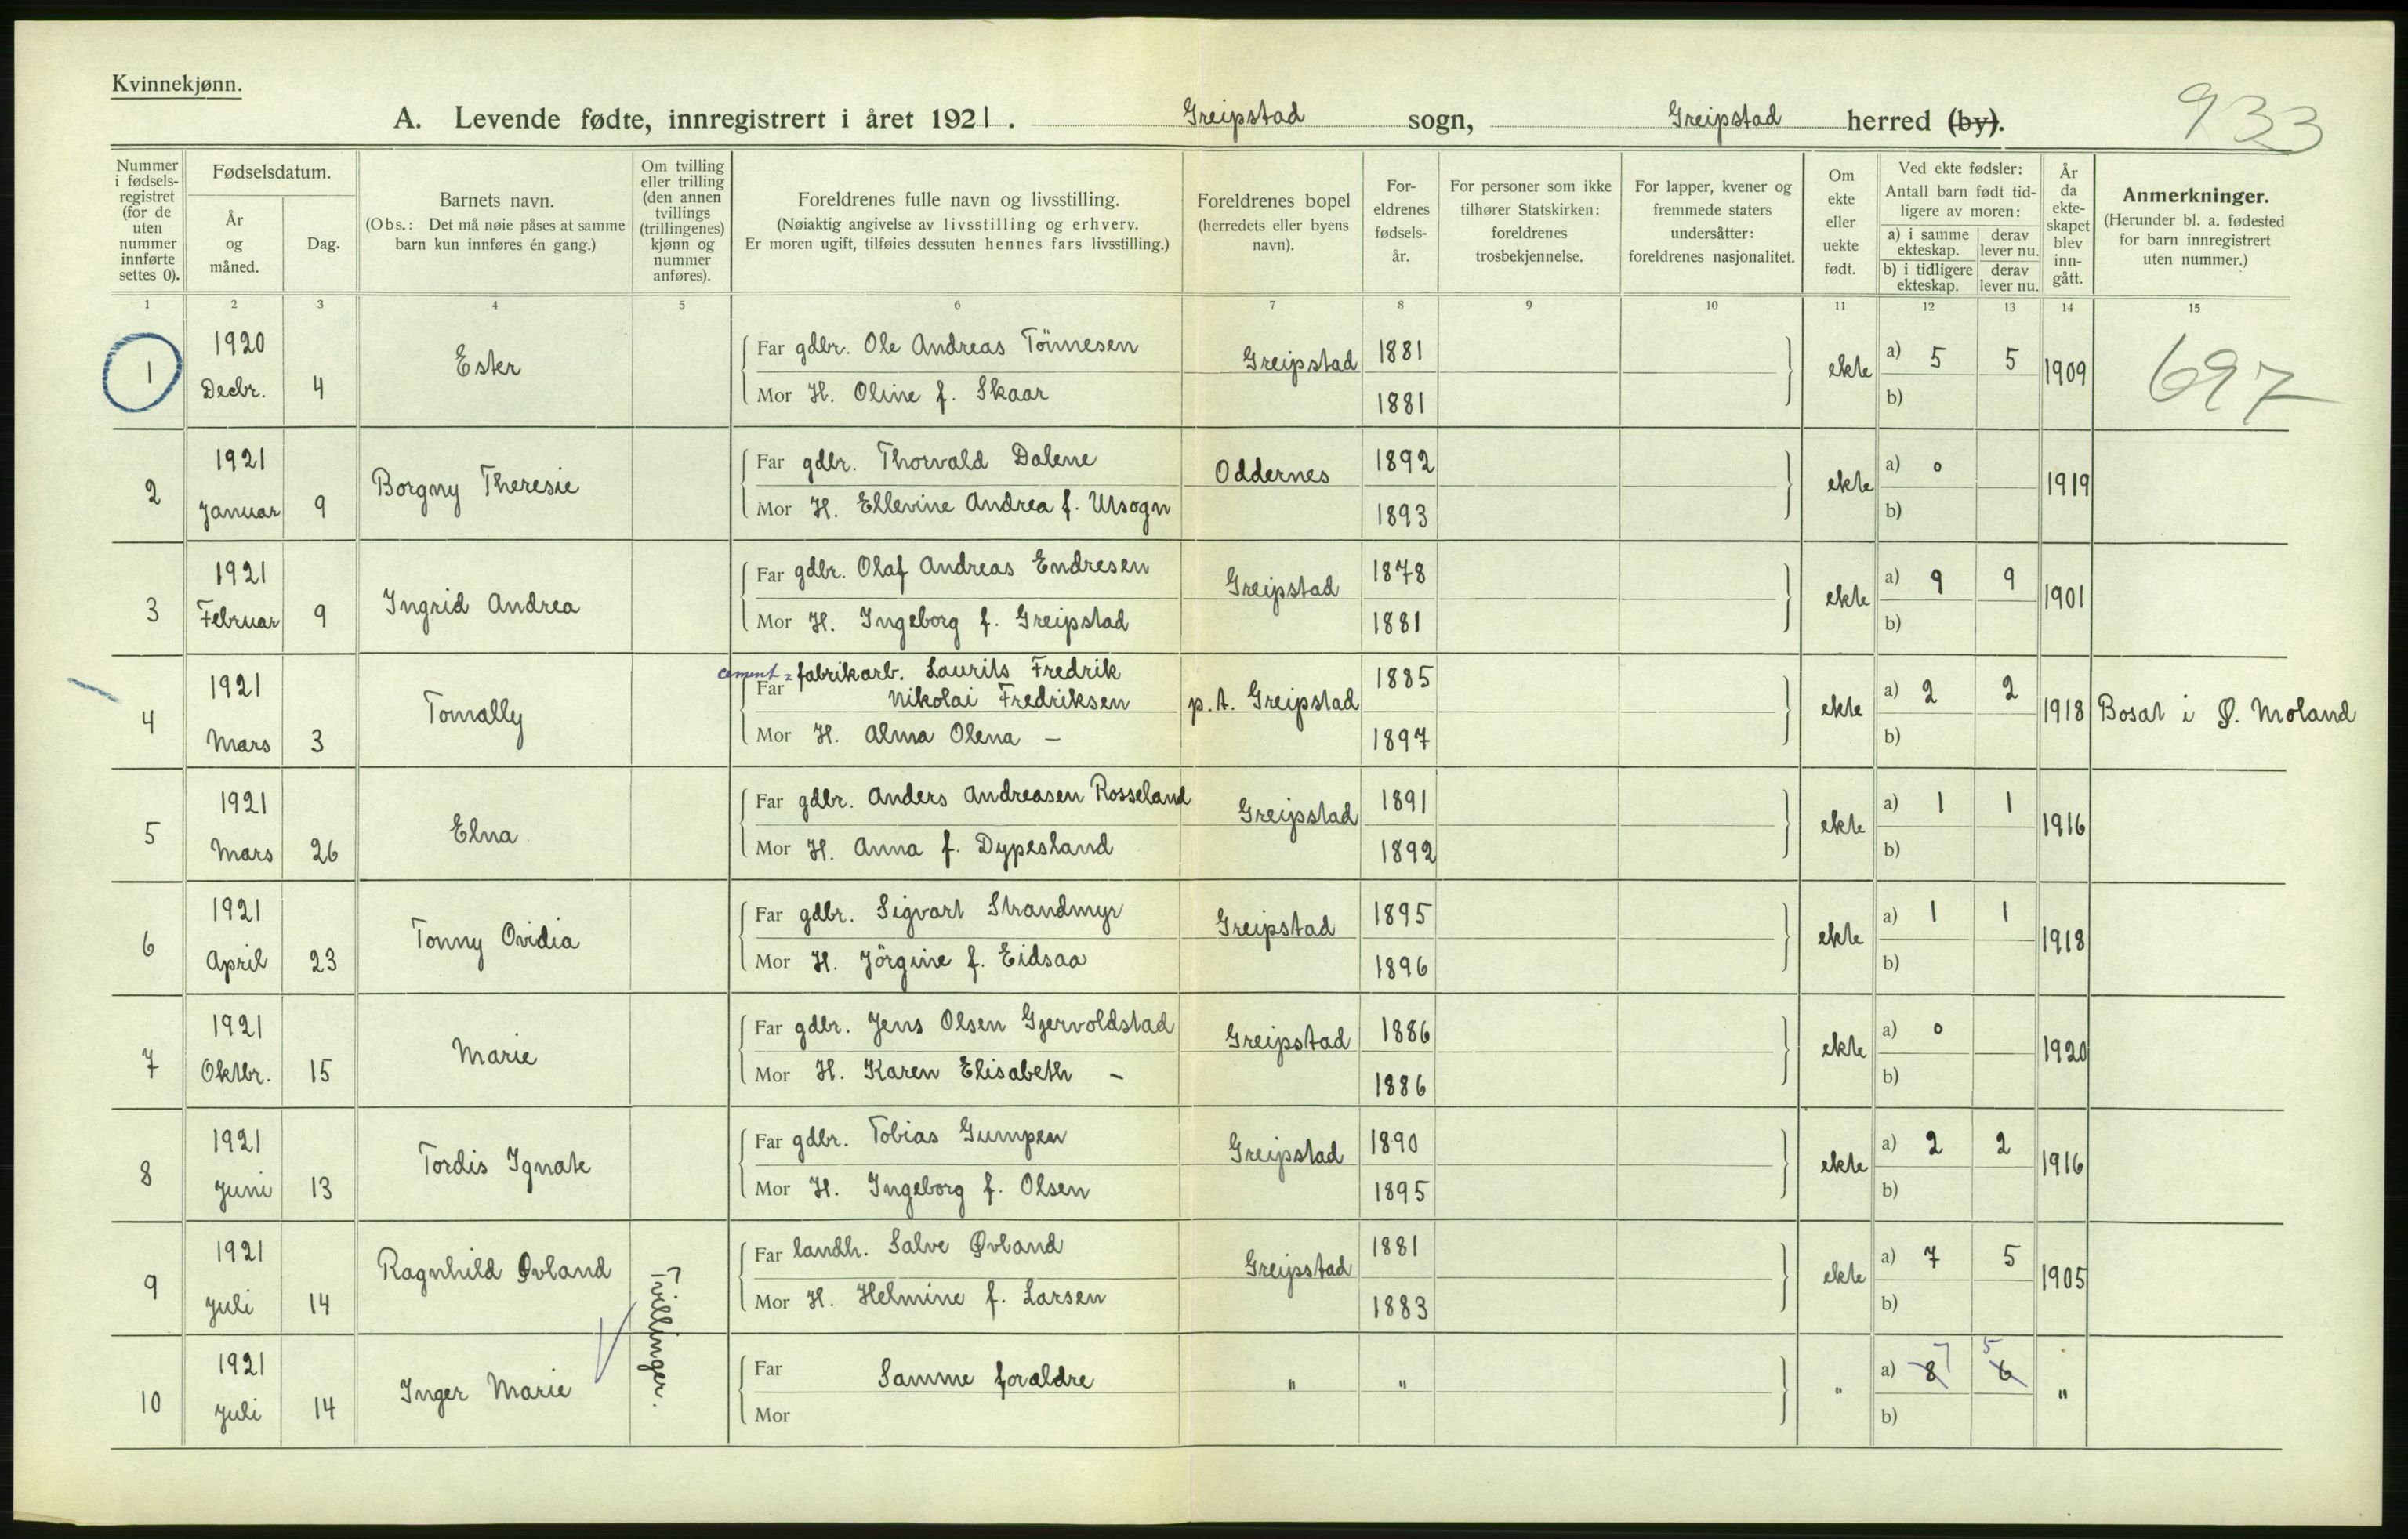 Kvinnekjønn.
A. Levende fødte, innregistrert i året 1921. Greipstad sogn, Greipstad herred (by).
933
Nummer i fødsels-registret (for de uten nummer innførte settes 0).
Fødselsdatum.
År og måned.
Dag.
Barnets navn.
(Obs.: Det må nøie påses at samme barn kun innføres én gang.)
Om tvilling eller trilling (den annen tvillings (trillingenes) kjønn og nummer anføres).
Foreldrenes fulle navn og livsstilling.
(Nøiaktig angivelse av livsstilling og erhverv.
Er moren ugift, tilføies dessuten hennes fars livsstilling.)
Foreldrenes bopel
(herredets eller byens navn).
For-eldrenes fødsels-år.
For personer som ikke tilhører Statskirken: foreldrenes trosbekjennelse.
For lapper, kvener og fremmede staters undersåtter: foreldrenes nasjonalitet.
Om ekte eller uekte født.
Ved ekte fødsler:
Antall barn født tid-ligere av moren:
a) i samme ekteskap.
derav lever nu.
b) i tidligere ekteskap.
derav lever nu.
År da ekte-skapet blev inn-gått.
Anmerkninger.
(Herunder bl. a. fødested for barn innregistrert uten nummer.)
1 2 3 4 5 6 7 8 9 10 11 12 13 14 15
1 1920 Decbr. 4 Ester
Far gdbr. Ole Andreas Tönnesen Greipstad 1881
Mor H. Oline f. Skaar 1881
ekte a) 5 5 b) 1909 697
2 1921 Januar 9 Borgny Theresie
Far gdbr. Thorvald Dalene Oddernes 1892
Mor H. Ellevine Andrea f. Usogn 1893
ekte a) 0 b) 1919
3 1921 Februar 9 Ingrid Andrea
Far gdbr. Olaf Andreas Endresen Greipstad 1878
Mor H. Ingeborg f. Greipstad 1881
ekte a) 9 9 b) 1901
4 1921 Mars 3 Tomally
Far cement= fabrikarb. Laurits Fredrik
Nikolai Fredriksen p.t. Greipstad 1885
Mor H. Alma Olena – 1897
ekte a) 2 2 b) 1918 Bosat i Ø. Moland
5 1921 Mars 26 Elna
Far gdbr. Anders Andreasen Rosseland Greipstad 1891
Mor H. Anna f. Dypesland 1892
ekte a) 1 1 b) 1916
6 1921 April 23 Tonny Ovidia
Far gdbr. Sigvart Strandmyr Greipstad 1895
Mor H. Jörgine f. Eidsaa 1896
ekte a) 1 1 b) 1918
7 1921 Oktbr. 15 Marie
Far gdbr. Jens Olsen Gjervoldstad Greipstad 1886
Mor H. Karen Elisabeth – 1886
ekte a) 0 b) 1920
8 1921 Juni 13 Tordis Ignate
Far gdbr. Tobias Gumpen Greipstad 1890
Mor H. Ingeborg f. Olsen 1895
ekte a) 2 2 b) 1916
9 1921 Juli 14 Ragnhild Øvland Tvillinger.
Far landh. Salve Øvland Greipstad 1881
Mor H. Helmine f. Larsen 1883
ekte a) 7 5 b) 1905
10 1921 Juli 14 Inger Marie
Far Samme forældre " "
Mor
" a) 8 7 6 5 b) "